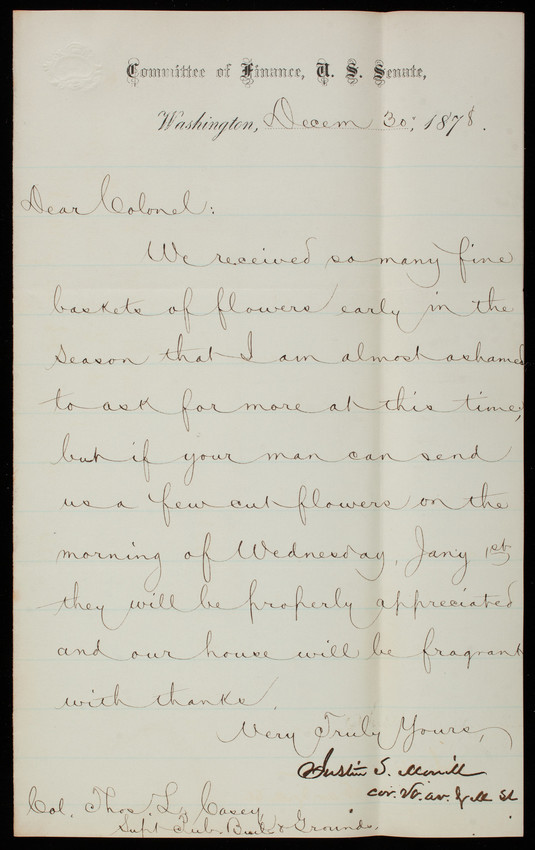 Committee of Finance, U. S. Senate,
Washington, Decem 30, 1878.
Dear Colonel:
We received so many fine
baskets of flowers early in the
season that I am almost ashamed
to ask for more at this time,
but if your man can send
us a few cut flowers on the
morning of Wednesday, Jany 1st
they will be properly appreciated
and our house will be fragrant
with thanks.
Very Truly Yours,
Justin S. Morrill
cor. Vt. av. & M St
Col. Thos. L. Casey
Supt Pub. Build & Grounds.